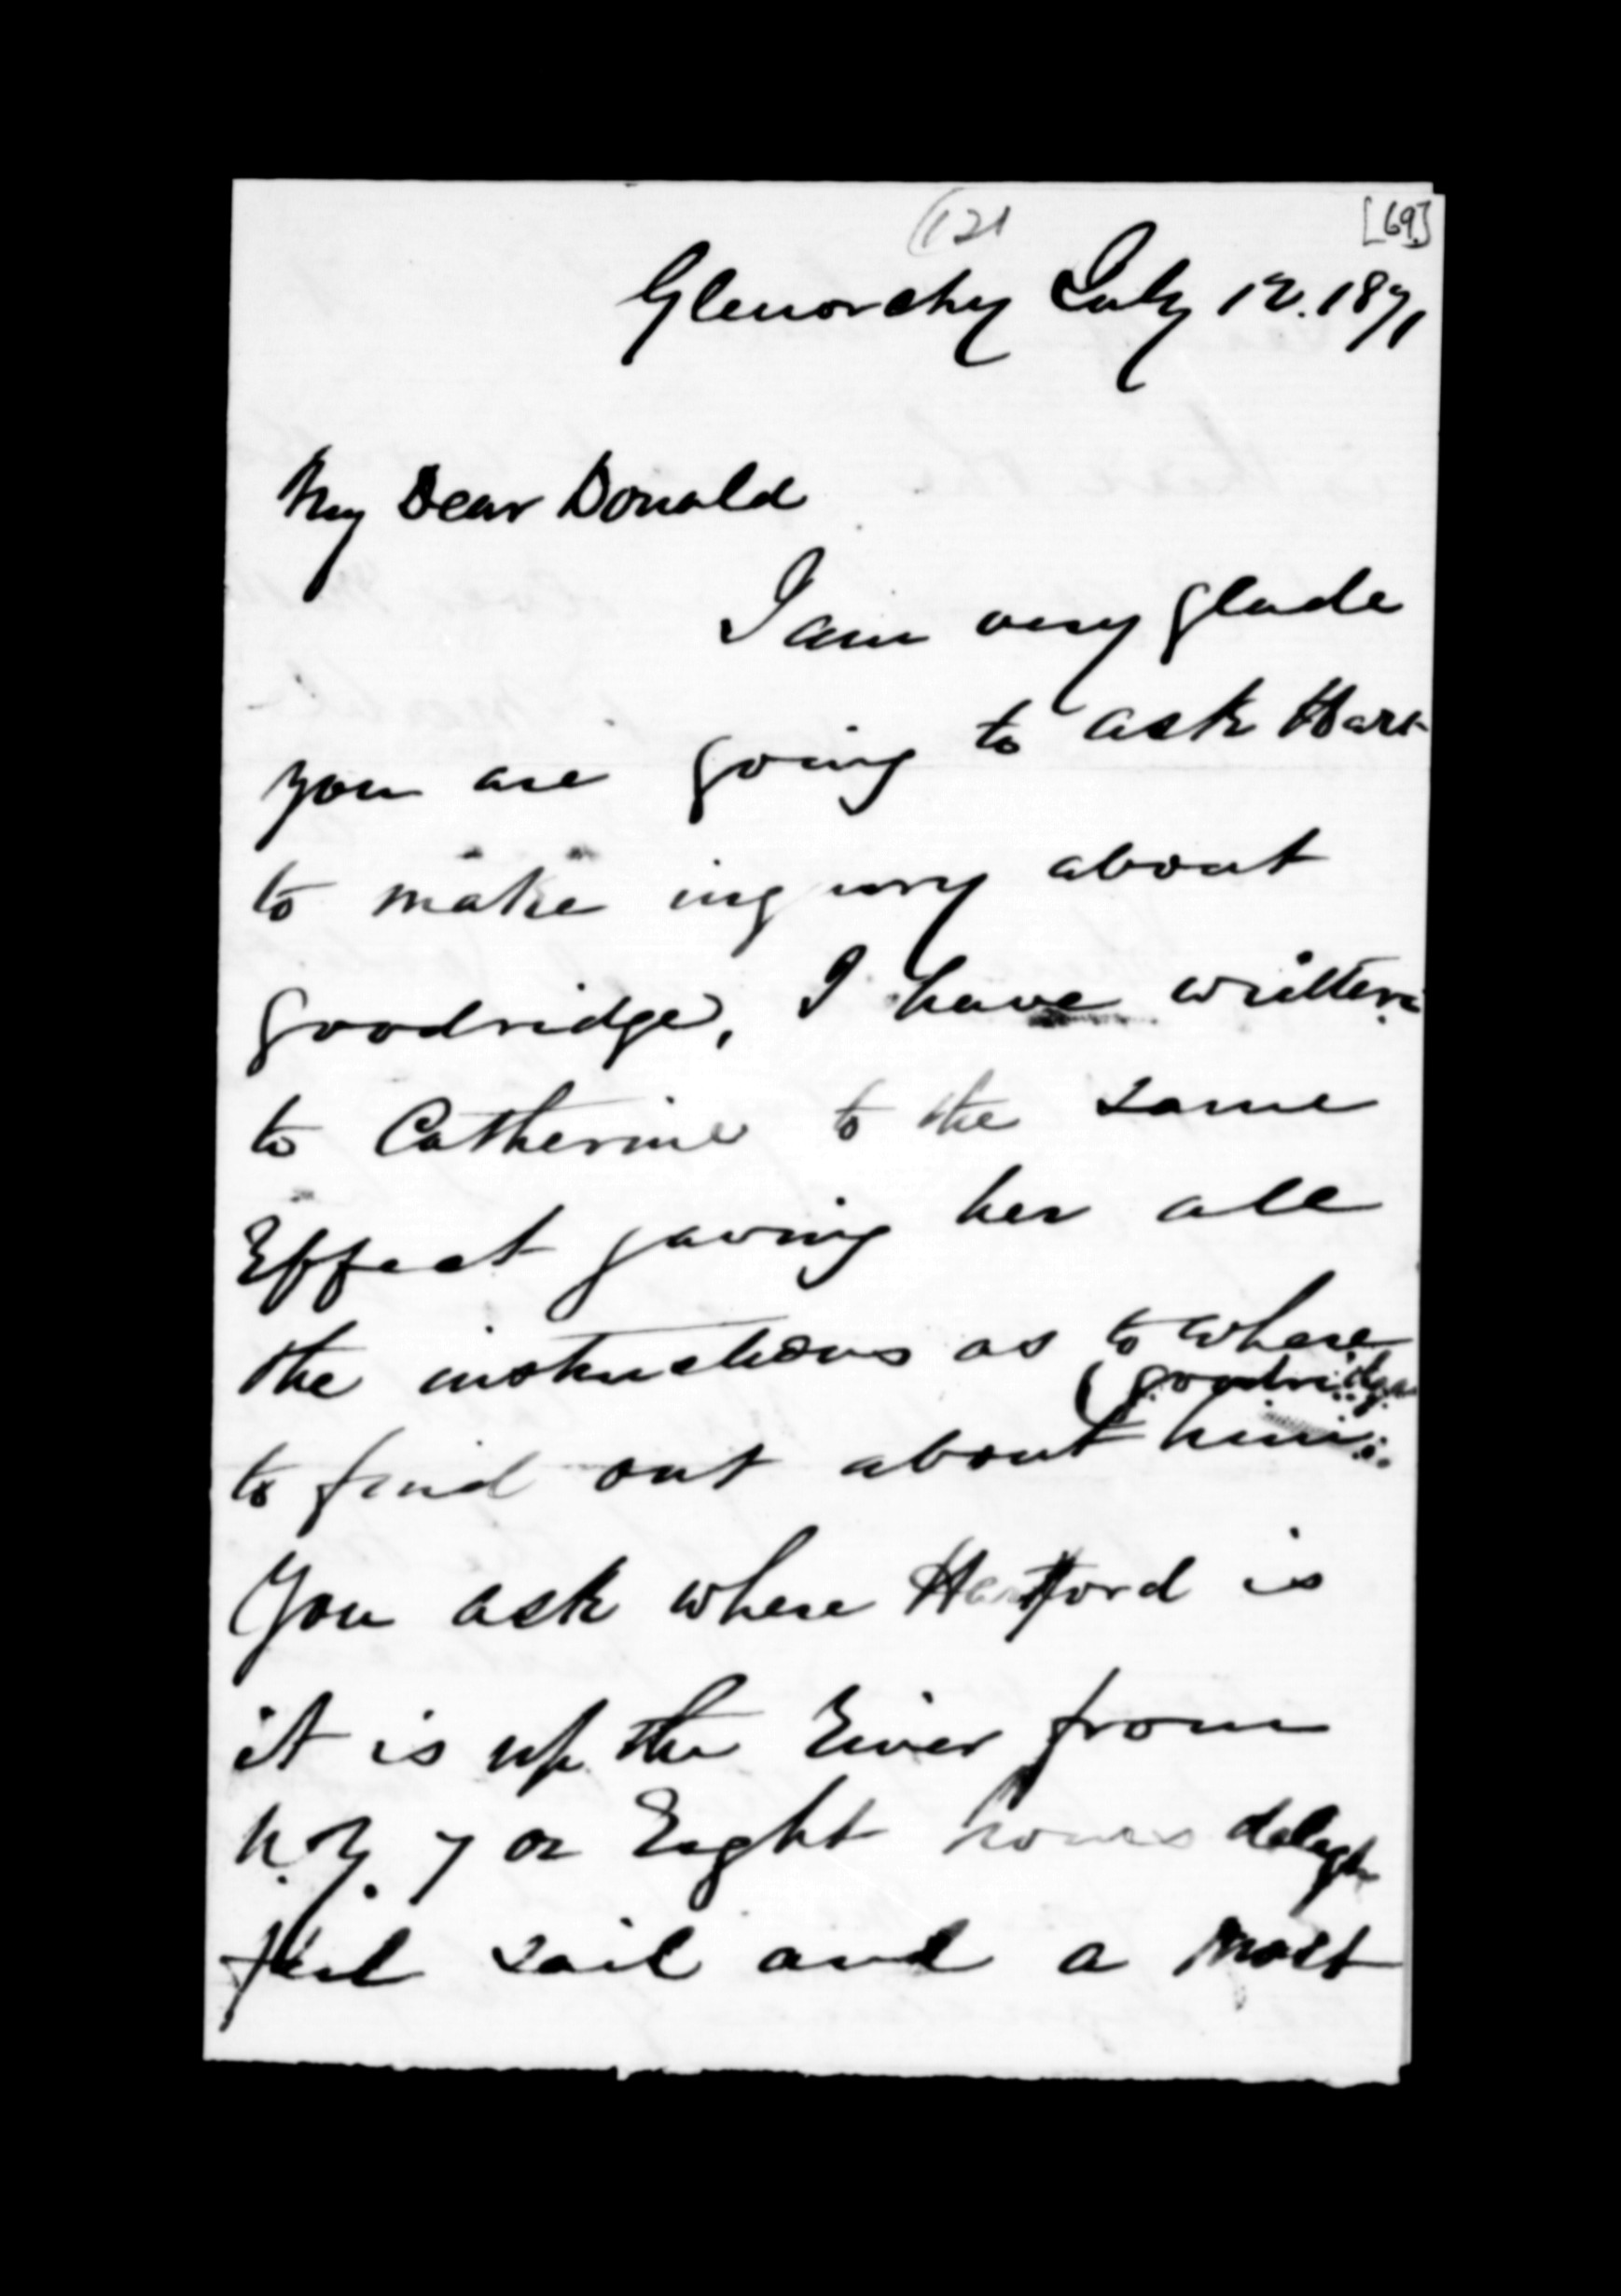 (121
[69]
Glenorchy July 12. 1871
My Dear Donald
I am very glade
you are going to ask Hart
to make inqury about
goodridge, I have written
to Catherine to the same
Effect gaving her all
the instructions as to where
(goodridge
to find out about him.
You ask where Hartford is
it is up the River from
N.Y. 7 or Eight hours deligh
ful sail and a most